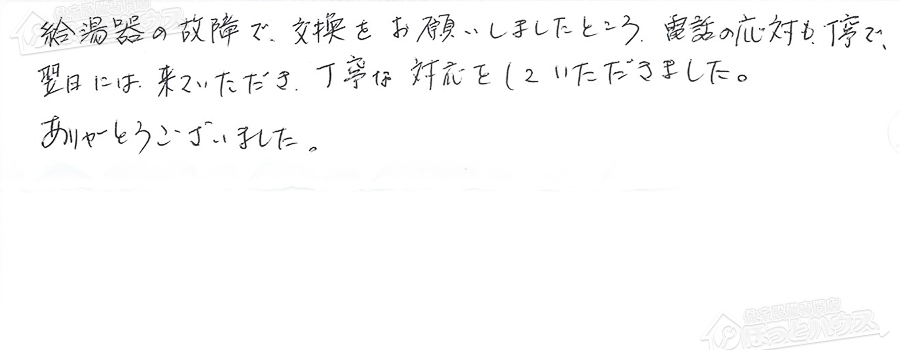 給湯器の故障で、交換をお願いしましたところ、電話の応対も丁寧で、
翌日には、来ていただき、丁寧な対応をしていただきました。
ありがとうございました。
住宅設備専門店
ほっとハウス